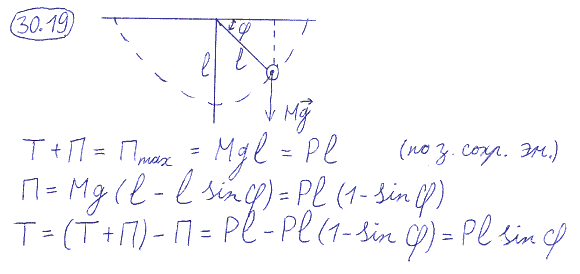 30.19
φ
l
l
Mg⃗
T + П = П_max = Mgl = Pl (по з. сохр. эн.)
П = Mg (l - l sin φ) = Pl (1 - sin φ)
T = (T + П) - П = Pl - Pl (1 - sin φ) = Pl sin φ